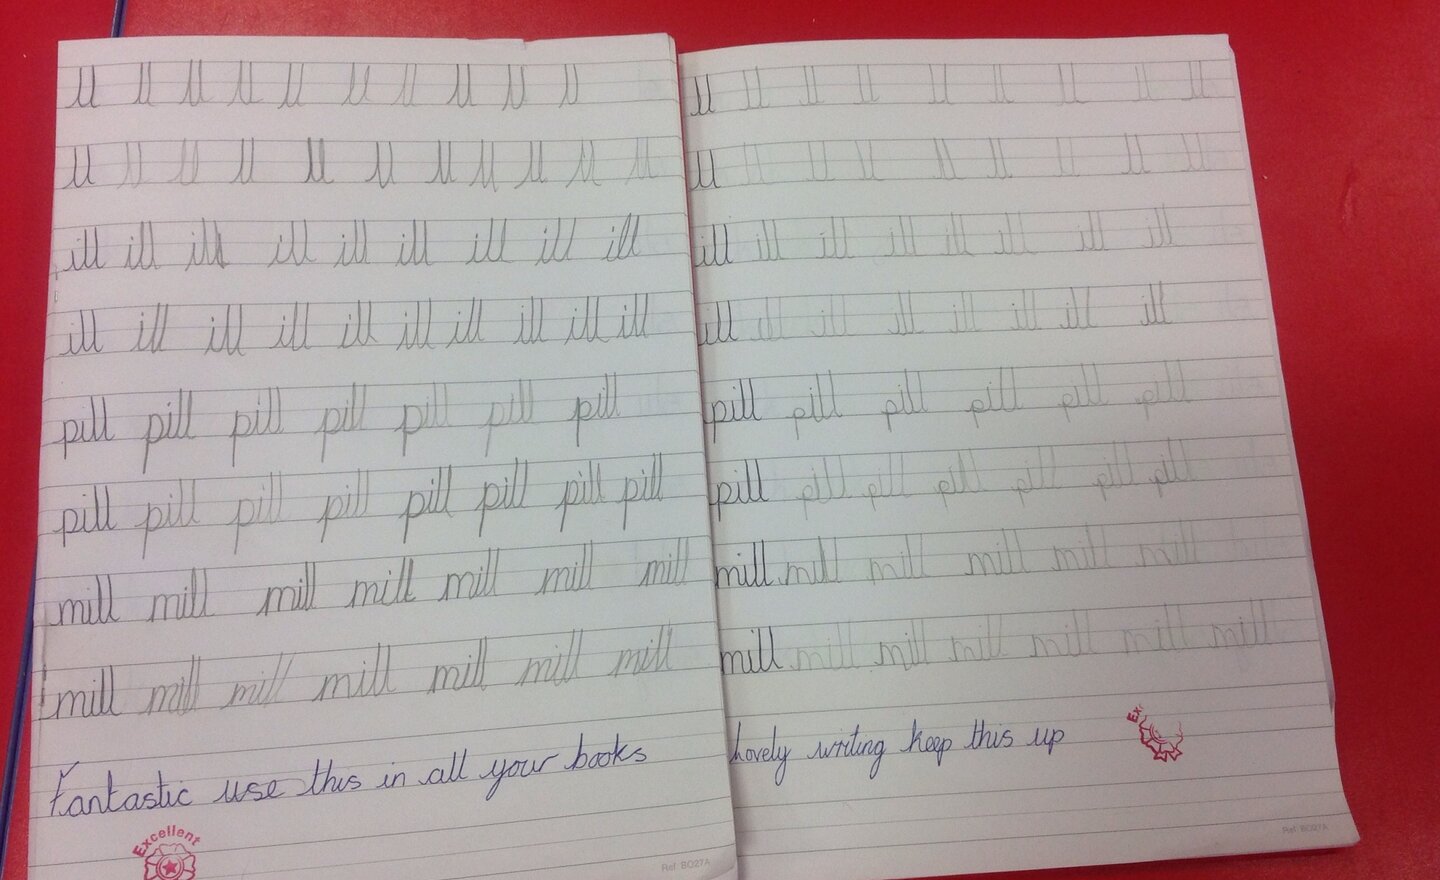 ll ll ll ll ll ll ll ll ll ll
ll ll ll ll ll ll ll ll ll ll ll
ill ill ill ill ill ill ill ill ill
ill ill ill ill ill ill ill ill ill ill
pill pill pill pill pill pill pill
pill pill pill pill pill pill pill pill
mill mill mill mill mill mill mill
mill mill mill mill mill mill mill
Fantastic use this in all your books
Excellent
Ref BO27A
ll ll ll ll ll ll ll ll ll
ll ll ll ll ll ll ll ll ll
ill ill ill ill ill ill ill ill
ill ill ill ill ill ill ill ill
pill pill pill pill pill pill
pill pill pill pill pill pill pill
mill mill mill mill mill mill
mill mill mill mill mill mill mill
Lovely writing keep this up
Ex
Ref BO27A